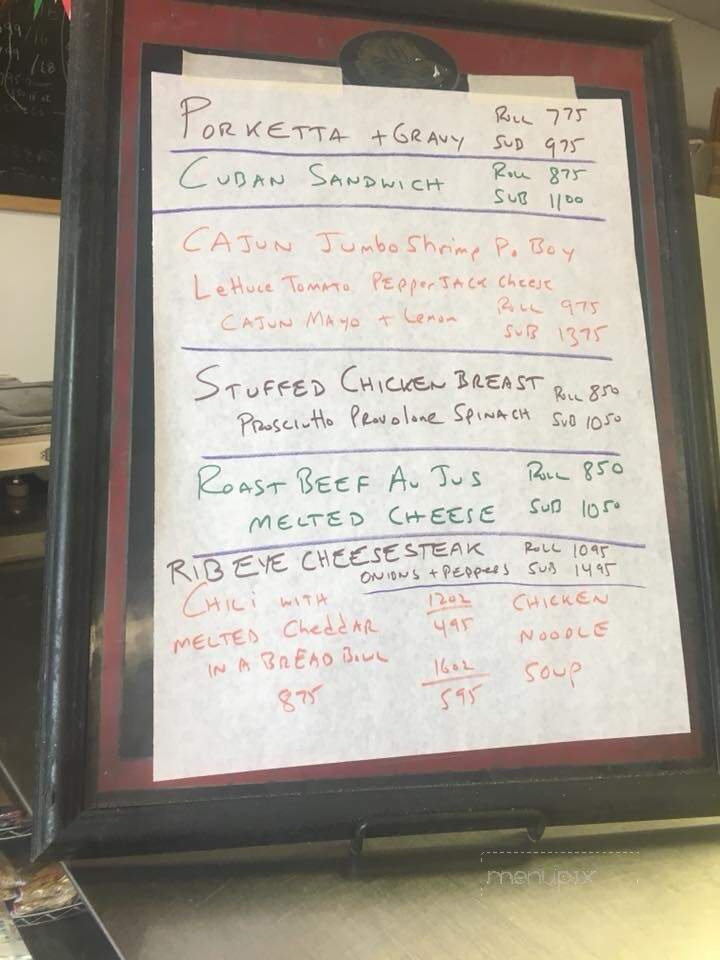 PORKETTA + GRAVY ROLL 775
SUB 975
CUBAN SANDWICH ROLL 875
SUB 1100
CAJUN Jumbo Shrimp Po Boy
Lettuce Tomato PEPPER JACK Cheese
CAJUN MAYO + Lemon ROLL 975
SUB 1375
STUFFED CHICKEN BREAST ROLL 850
PROSCIUTTO PROVOLONE SPINACH SUB 1050
ROAST BEEF AU JUS ROLL 850
MELTED CHEESE SUB 1050
RIB EYE CHEESESTEAK ROLL 1095
ONIONS + PEPPERS SUB 1495
CHILI WITH
MELTED CHEDDAR
IN A BREAD BOWL
875
12OZ
495
16OZ
595
CHICKEN
NOODLE
SOUP
menupix